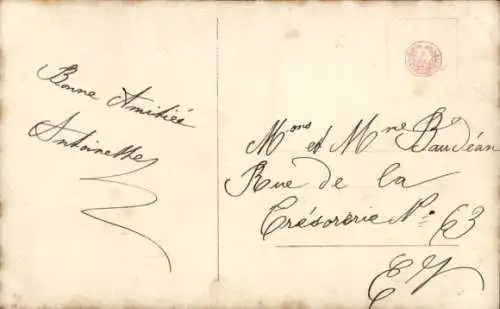 Bonne Amitiée
Antoinette
Mons et Mme Baudéan
Rue de la
Trésorerie No 63
EV